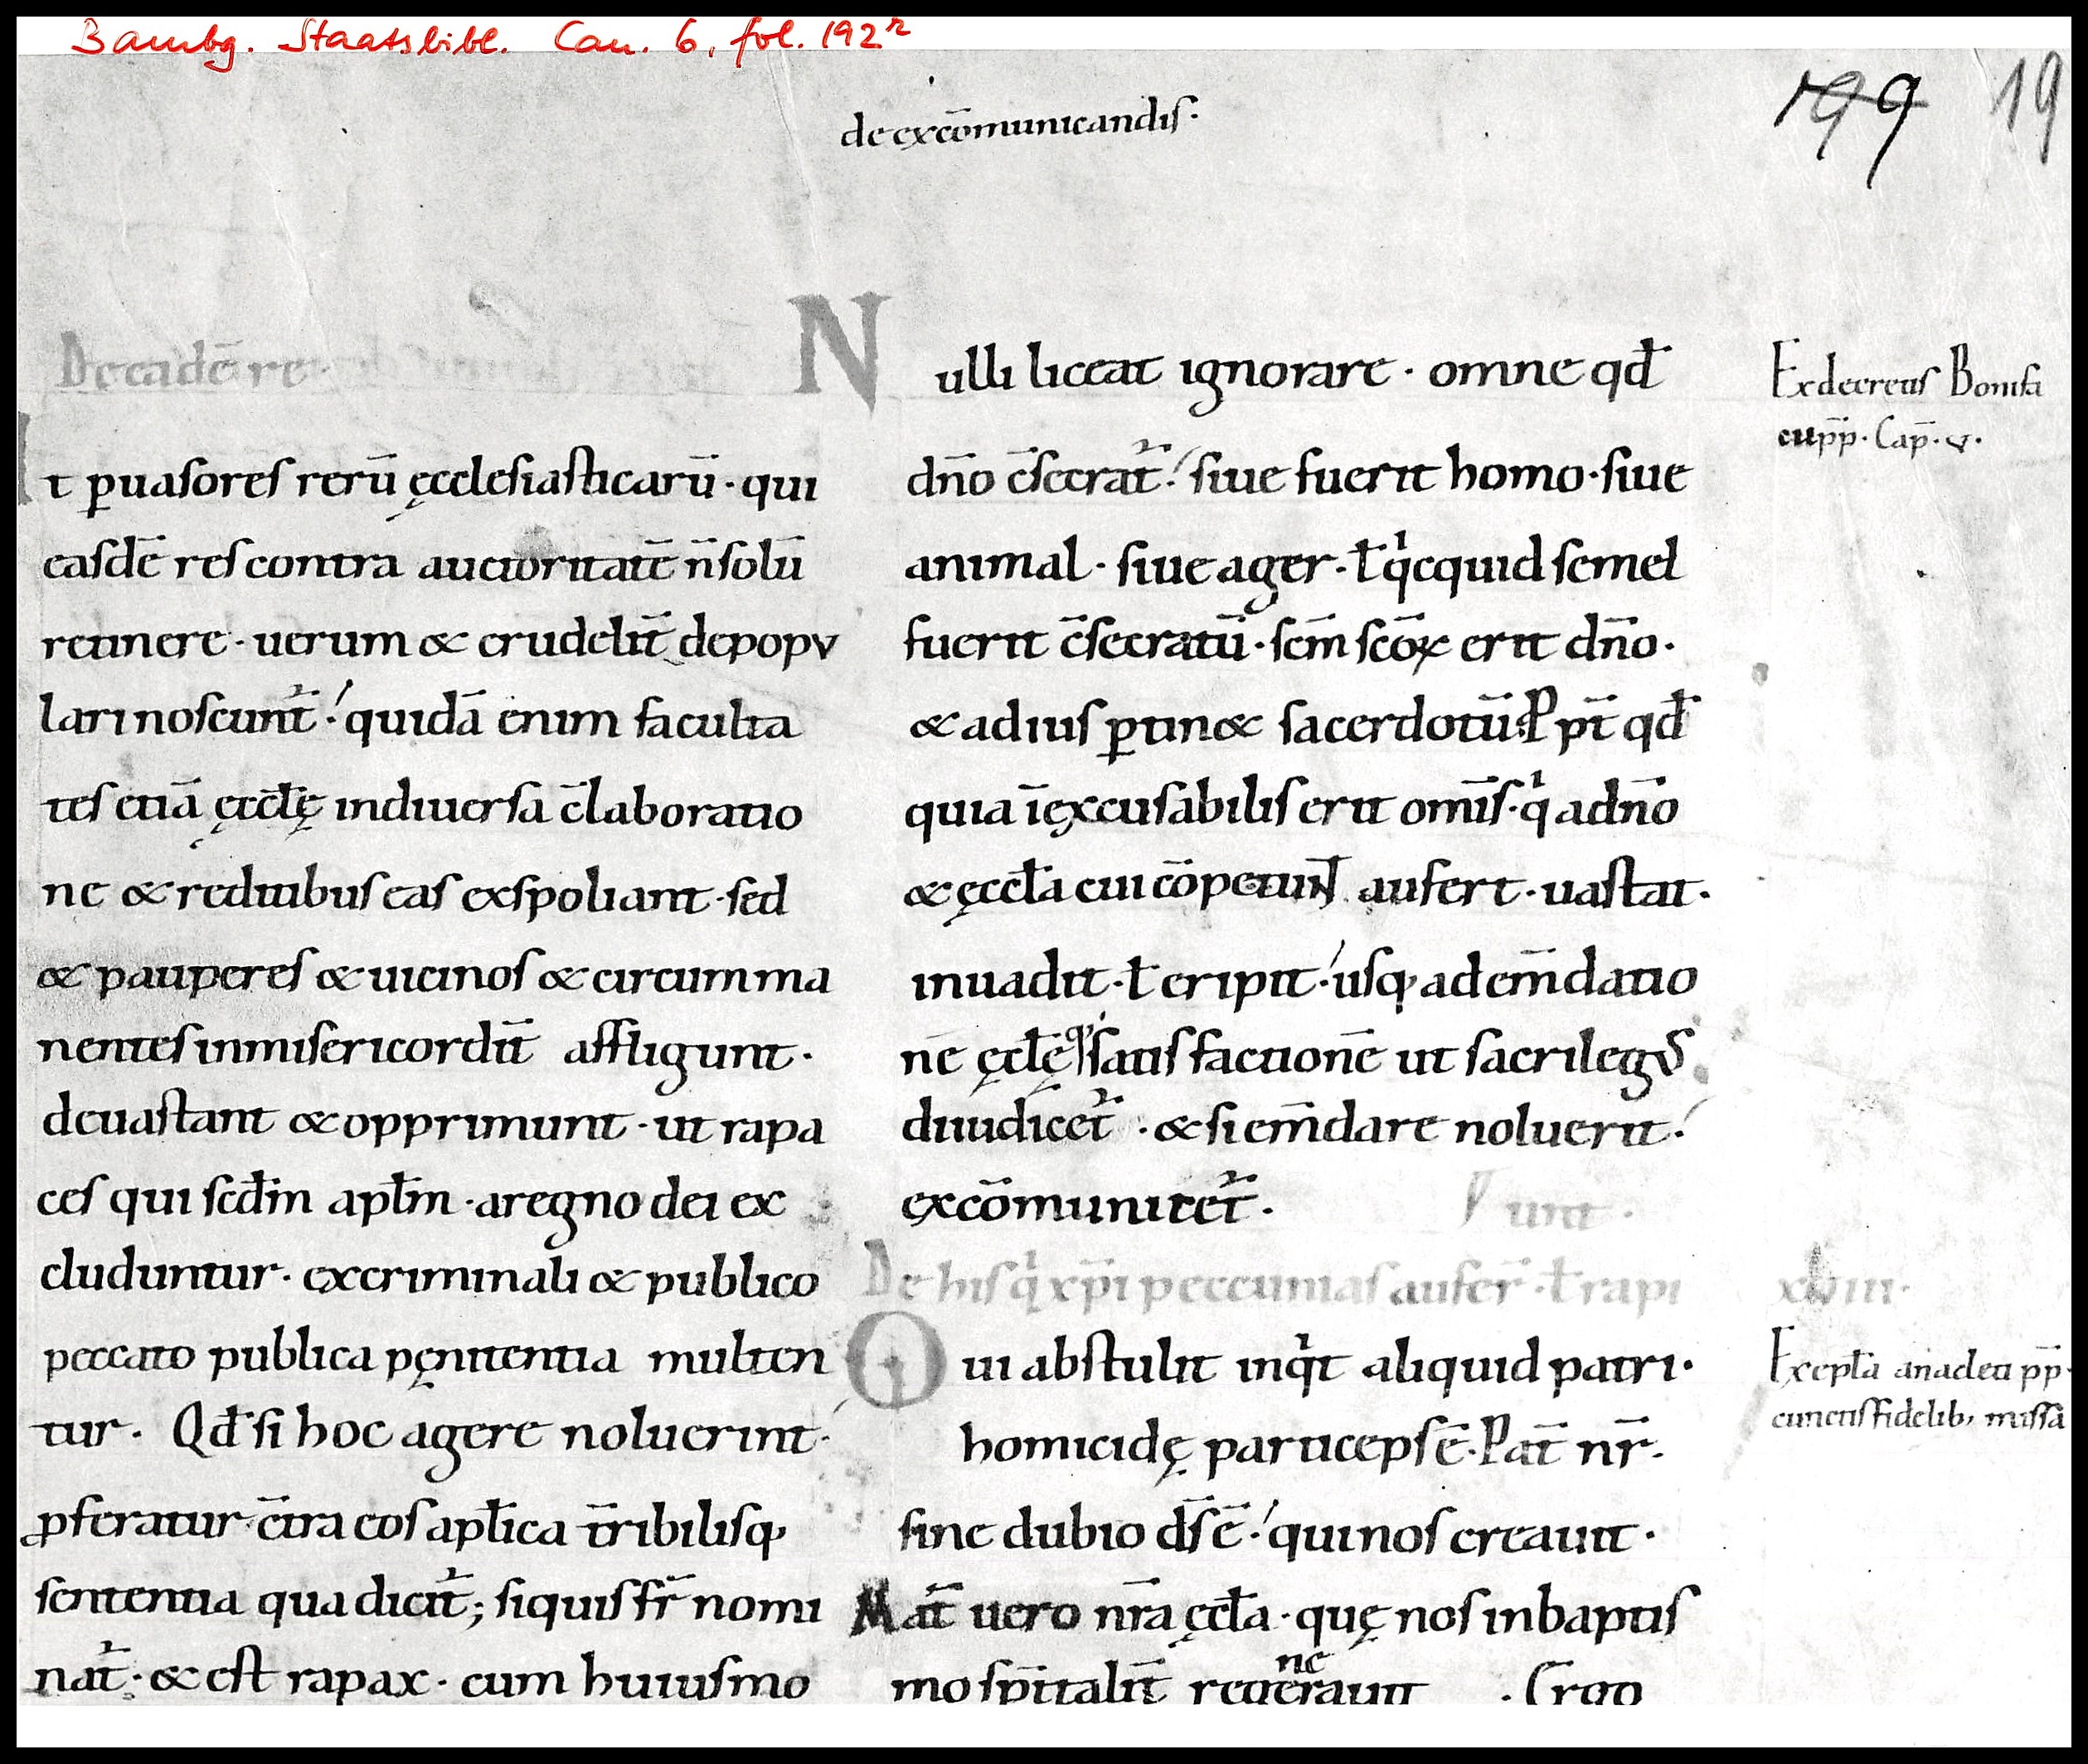 Bambg. Staatsbibl. Can. 6, fol. 192r
199 19
de excōmunicandis·
Decadē re·
t ꝑuasores rerū ęcclesiasticarū· qui
easdē res contra auctoritatē n̄ solū
retinere· uerum & crudelit̄ depopu
lari noscunt᷑· quidā enim faculta
tes etiā ęccłę indiuersa c̄laboratio
ne & reditibus eas exspoliant· sed
& pauperes & uicinos & circumma
nentes inmisericordit̄ affligunt·
deuastant & opprimunt· ut rapa
ces qui scđm apłm· aregno dei ex
cluduntur· excriminali & publico
peccato publica pęnitentia multen
tur· Qđ si hoc agere noluerint·
ꝓferatur c̄tra eos apłica t̄ribilisq;
sententia qua dicit᷑; siquis fr̄ nomi
nat᷑· & est rapax· cum huiusmo
Nulli liceat ignorare· omne qđ
dn̄o c̄secrat᷑· siue fuerit homo· siue
animal· siue ager· ł qͥcquid semel
fuerit c̄secratū· scm̄ scōꝝ erit dn̄o·
& adius ꝑtin& sacerdotū· Ppt̄ qđ
quia īexcusabilis erit omīs· qͥ adn̄o
& ęccła cui cōpetunt aufert· uastat·
inuadit· ł eripit· usq; ad em̄datio
nē ęcłę qͥ satisfactionē ut sacrilegus
diiudicet᷑· & si em̄dare noluerit·
excōmunicet᷑·
unt·
De his qͥ xp̄i peccunias aufer̄· ł rapi
Qui abstulit inqͥt aliquid patri·
homicidę particeps ē· Pat̄ nr̄·
sine dubio ds̄ ē· qui nos creauit·
Mat̄ uero nr̄a ęcła· quę nos inbaptis
mo sp̄italit̄ regenerauit· Ergo
Ex decretis Bonifa
cii pp̄· Cap̄· v·
xlviii·
Ex epła anacleti pp̄·
cunctis fidelib; missa